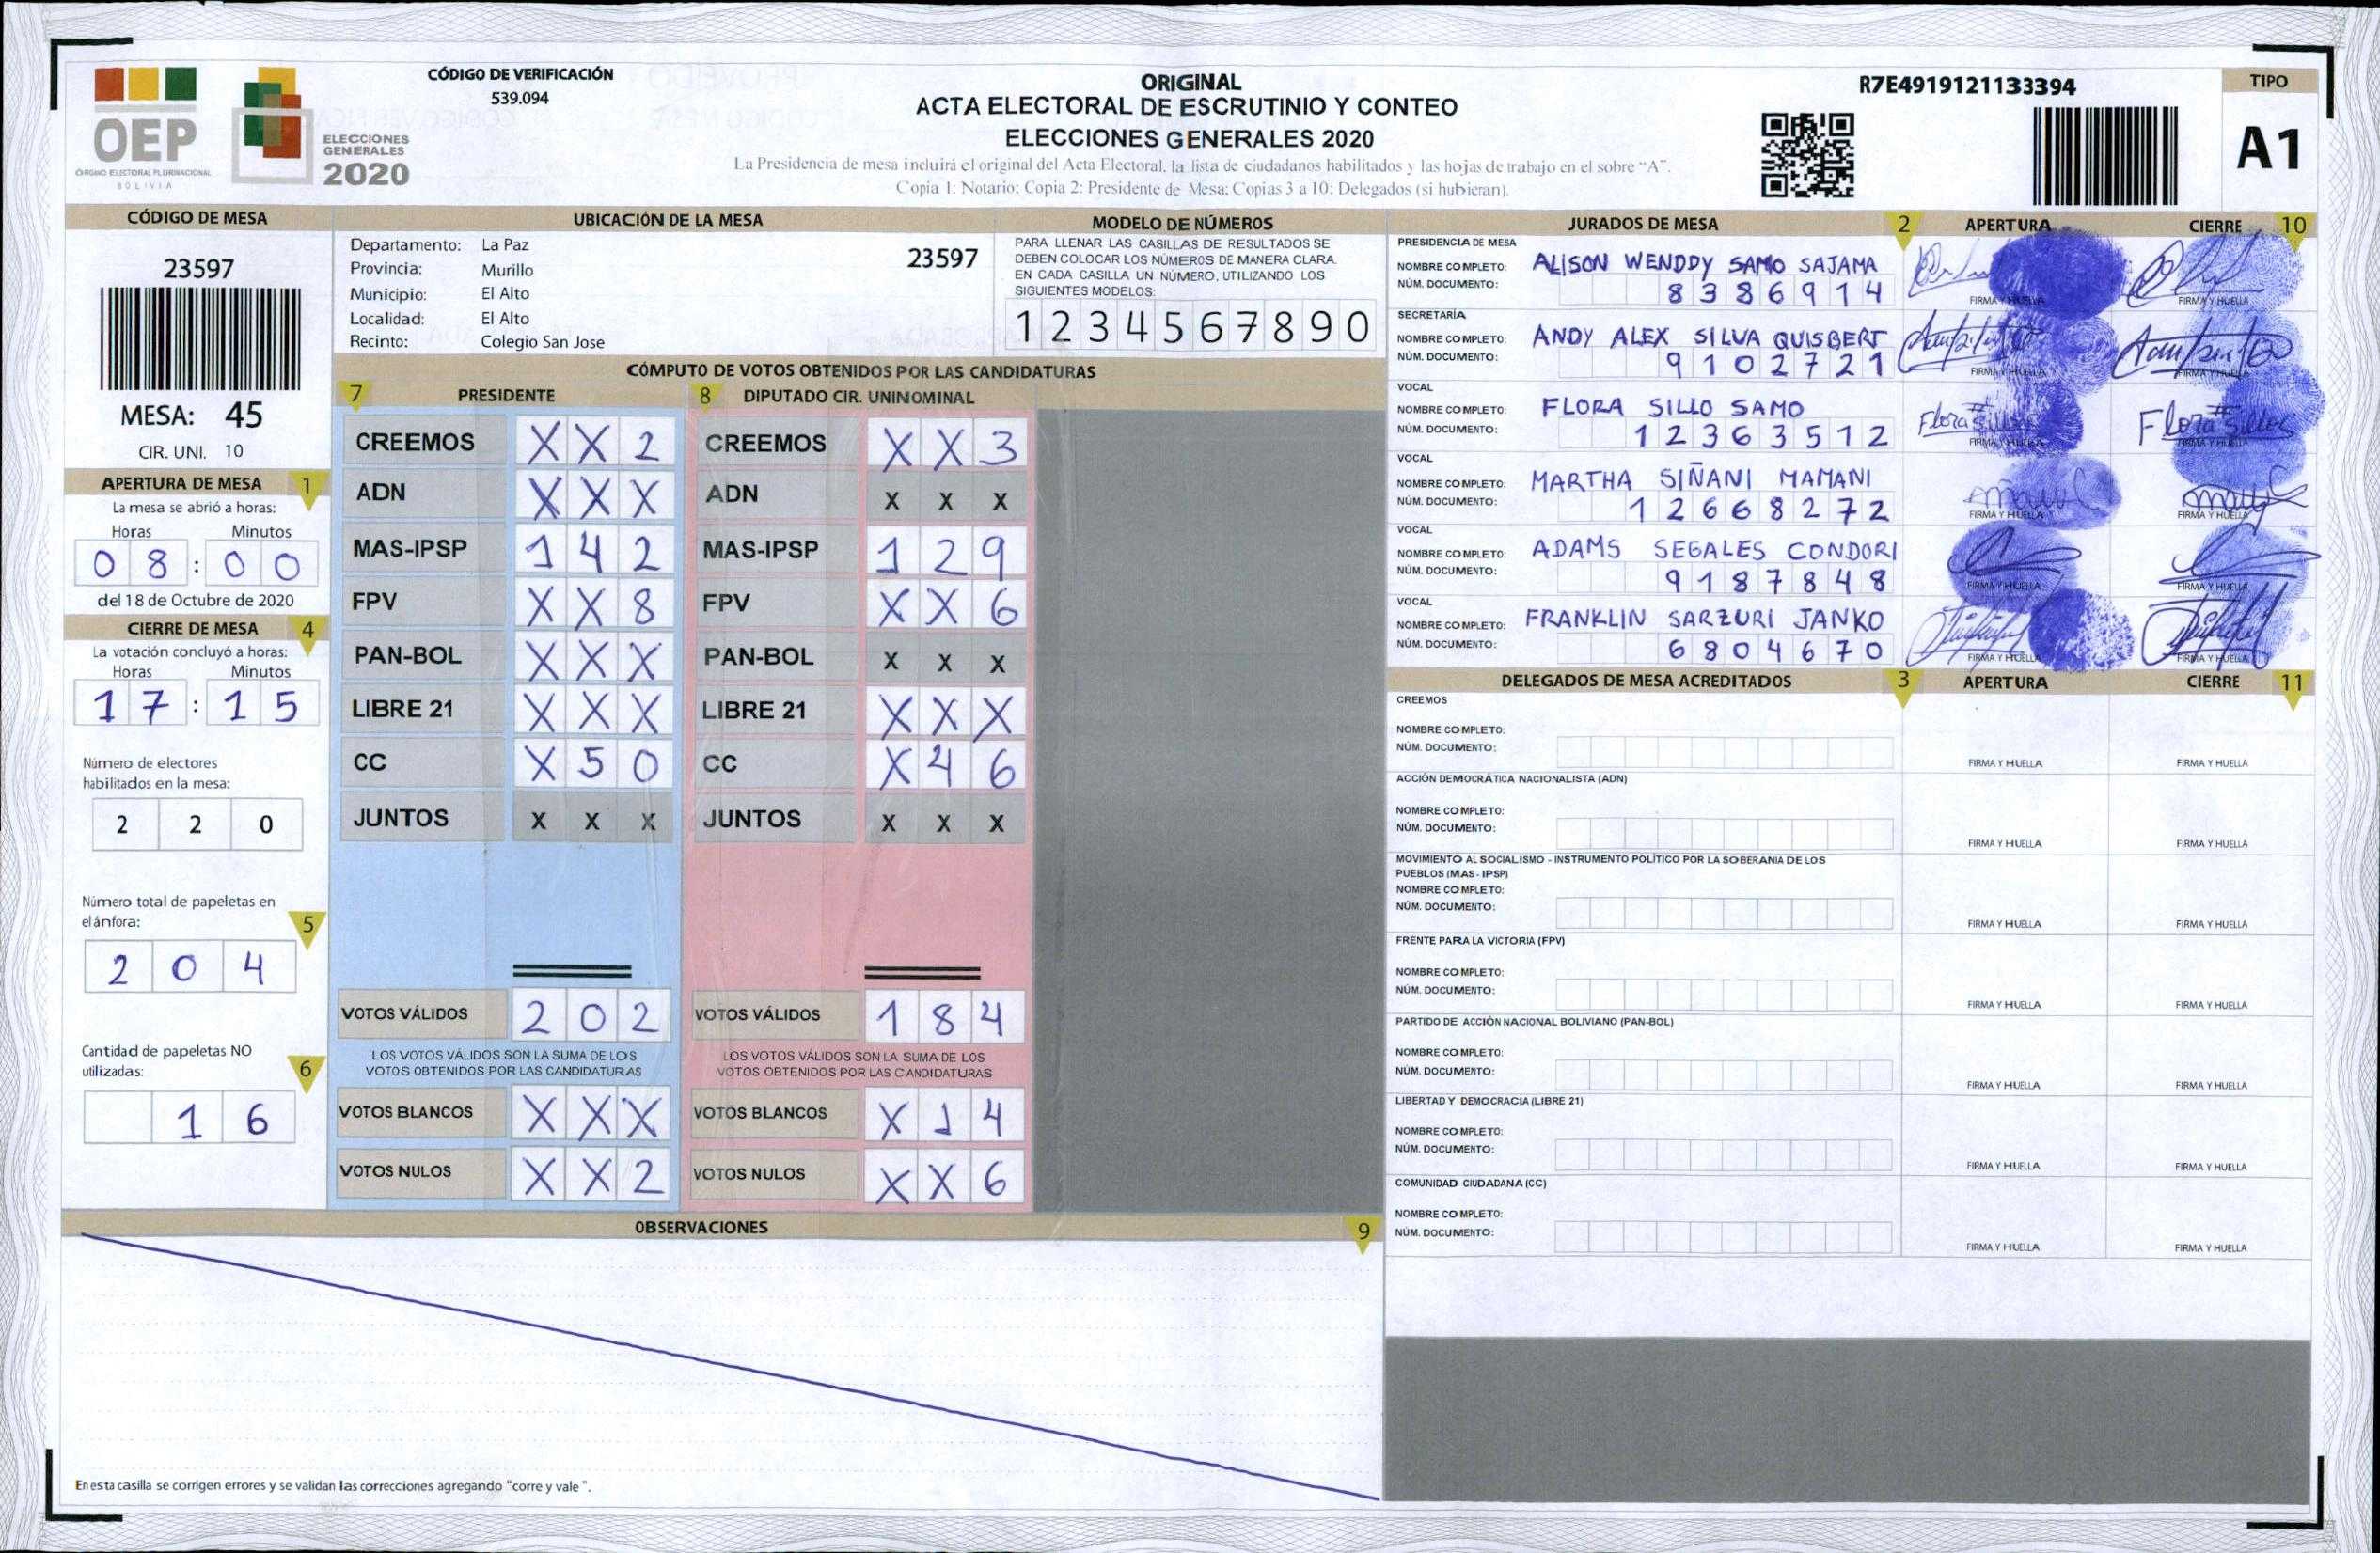 OEP
ÓRGANO ELECTORAL PLURINACIONAL
BOLIVIA
ELECCIONES
GENERALES
2020
CÓDIGO DE VERIFICACIÓN
539.094
ORIGINAL
ACTA ELECTORAL DE ESCRUTINIO Y CONTEO
ELECCIONES GENERALES 2020
La Presidencia de mesa incluirá el original del Acta Electoral, la lista de ciudadanos habilitados y las hojas de trabajo en el sobre “A”.
Copia 1: Notario; Copia 2: Presidente de Mesa; Copias 3 a 10: Delegados (si hubieran).
R7E4919121133394
TIPO
A1
CÓDIGO DE MESA
23597
MESA: 45
CIR. UNI. 10
APERTURA DE MESA 1
La mesa se abrió a horas:
Horas Minutos
0 8 : 0 0
del 18 de Octubre de 2020
CIERRE DE MESA 4
La votación concluyó a horas:
Horas Minutos
1 7 : 1 5
Número de electores
habilitados en la mesa:
2 2 0
Número total de papeletas en
el ánfora:
5
2 0 4
Cantidad de papeletas NO
utilizadas:
6
1 6
UBICACIÓN DE LA MESA
Departamento: La Paz
23597
Provincia: Murillo
Municipio: El Alto
Localidad: El Alto
Recinto: Colegio San Jose
MODELO DE NÚMEROS
PARA LLENAR LAS CASILLAS DE RESULTADOS SE
DEBEN COLOCAR LOS NÚMEROS DE MANERA CLARA.
EN CADA CASILLA UN NÚMERO, UTILIZANDO LOS
SIGUIENTES MODELOS:
1 2 3 4 5 6 7 8 9 0
CÓMPUTO DE VOTOS OBTENIDOS POR LAS CANDIDATURAS
7 PRESIDENTE 8 DIPUTADO CIR. UNINOMINAL
CREEMOS X X 2 CREEMOS X X 3
ADN X X X ADN X X X
MAS-IPSP 1 4 2 MAS-IPSP 1 2 9
FPV X X 8 FPV X X 6
PAN-BOL X X X PAN-BOL X X X
LIBRE 21 X X X LIBRE 21 X X X
CC X 5 0 CC X 4 6
JUNTOS X X X JUNTOS X X X
VOTOS VÁLIDOS 2 0 2 VOTOS VÁLIDOS 1 8 4
LOS VOTOS VÁLIDOS SON LA SUMA DE LOS LOS VOTOS VÁLIDOS SON LA SUMA DE LOS
VOTOS OBTENIDOS POR LAS CANDIDATURAS VOTOS OBTENIDOS POR LAS CANDIDATURAS
VOTOS BLANCOS X X X VOTOS BLANCOS X 1 4
VOTOS NULOS X X 2 VOTOS NULOS X X 6
OBSERVACIONES 9
En esta casilla se corrigen errores y se validan las correcciones agregando "corre y vale ".
JURADOS DE MESA 2 APERTURA CIERRE 10
PRESIDENCIA DE MESA
NOMBRE COMPLETO: ALISON WENDDY SAMO SAJAMA
NÚM. DOCUMENTO: 8 3 8 6 9 1 4
FIRMA Y HUELLA FIRMA Y HUELLA
SECRETARÍA
NOMBRE COMPLETO: ANDY ALEX SILVA QUISBERT
NÚM. DOCUMENTO: 9 1 0 2 7 2 1
FIRMA Y HUELLA FIRMA Y HUELLA
VOCAL
NOMBRE COMPLETO: FLORA SILLO SAMO
Flora Sillo Flora Sillo
NÚM. DOCUMENTO: 1 2 3 6 3 5 1 2
FIRMA Y HUELLA FIRMA Y HUELLA
VOCAL
NOMBRE COMPLETO: MARTHA SIÑANI MAMANI
NÚM. DOCUMENTO: 1 2 6 6 8 2 7 2
FIRMA Y HUELLA FIRMA Y HUELLA
VOCAL
NOMBRE COMPLETO: ADAMS SEGALES CONDORI
NÚM. DOCUMENTO: 9 1 8 7 8 4 8
FIRMA Y HUELLA FIRMA Y HUELLA
VOCAL
NOMBRE COMPLETO: FRANKLIN SARZURI JANKO
NÚM. DOCUMENTO: 6 8 0 4 6 7 0
FIRMA Y HUELLA FIRMA Y HUELLA
DELEGADOS DE MESA ACREDITADOS 3 APERTURA CIERRE 11
CREEMOS
NOMBRE COMPLETO:
NÚM. DOCUMENTO:
FIRMA Y HUELLA FIRMA Y HUELLA
ACCIÓN DEMOCRÁTICA NACIONALISTA (ADN)
NOMBRE COMPLETO:
NÚM. DOCUMENTO:
FIRMA Y HUELLA FIRMA Y HUELLA
MOVIMIENTO AL SOCIALISMO - INSTRUMENTO POLÍTICO POR LA SOBERANIA DE LOS
PUEBLOS (MAS - IPSP)
NOMBRE COMPLETO:
NÚM. DOCUMENTO:
FIRMA Y HUELLA FIRMA Y HUELLA
FRENTE PARA LA VICTORIA (FPV)
NOMBRE COMPLETO:
NÚM. DOCUMENTO:
FIRMA Y HUELLA FIRMA Y HUELLA
PARTIDO DE ACCIÓN NACIONAL BOLIVIANO (PAN-BOL)
NOMBRE COMPLETO:
NÚM. DOCUMENTO:
FIRMA Y HUELLA FIRMA Y HUELLA
LIBERTAD Y DEMOCRACIA (LIBRE 21)
NOMBRE COMPLETO:
NÚM. DOCUMENTO:
FIRMA Y HUELLA FIRMA Y HUELLA
COMUNIDAD CIUDADANA (CC)
NOMBRE COMPLETO:
NÚM. DOCUMENTO:
FIRMA Y HUELLA FIRMA Y HUELLA